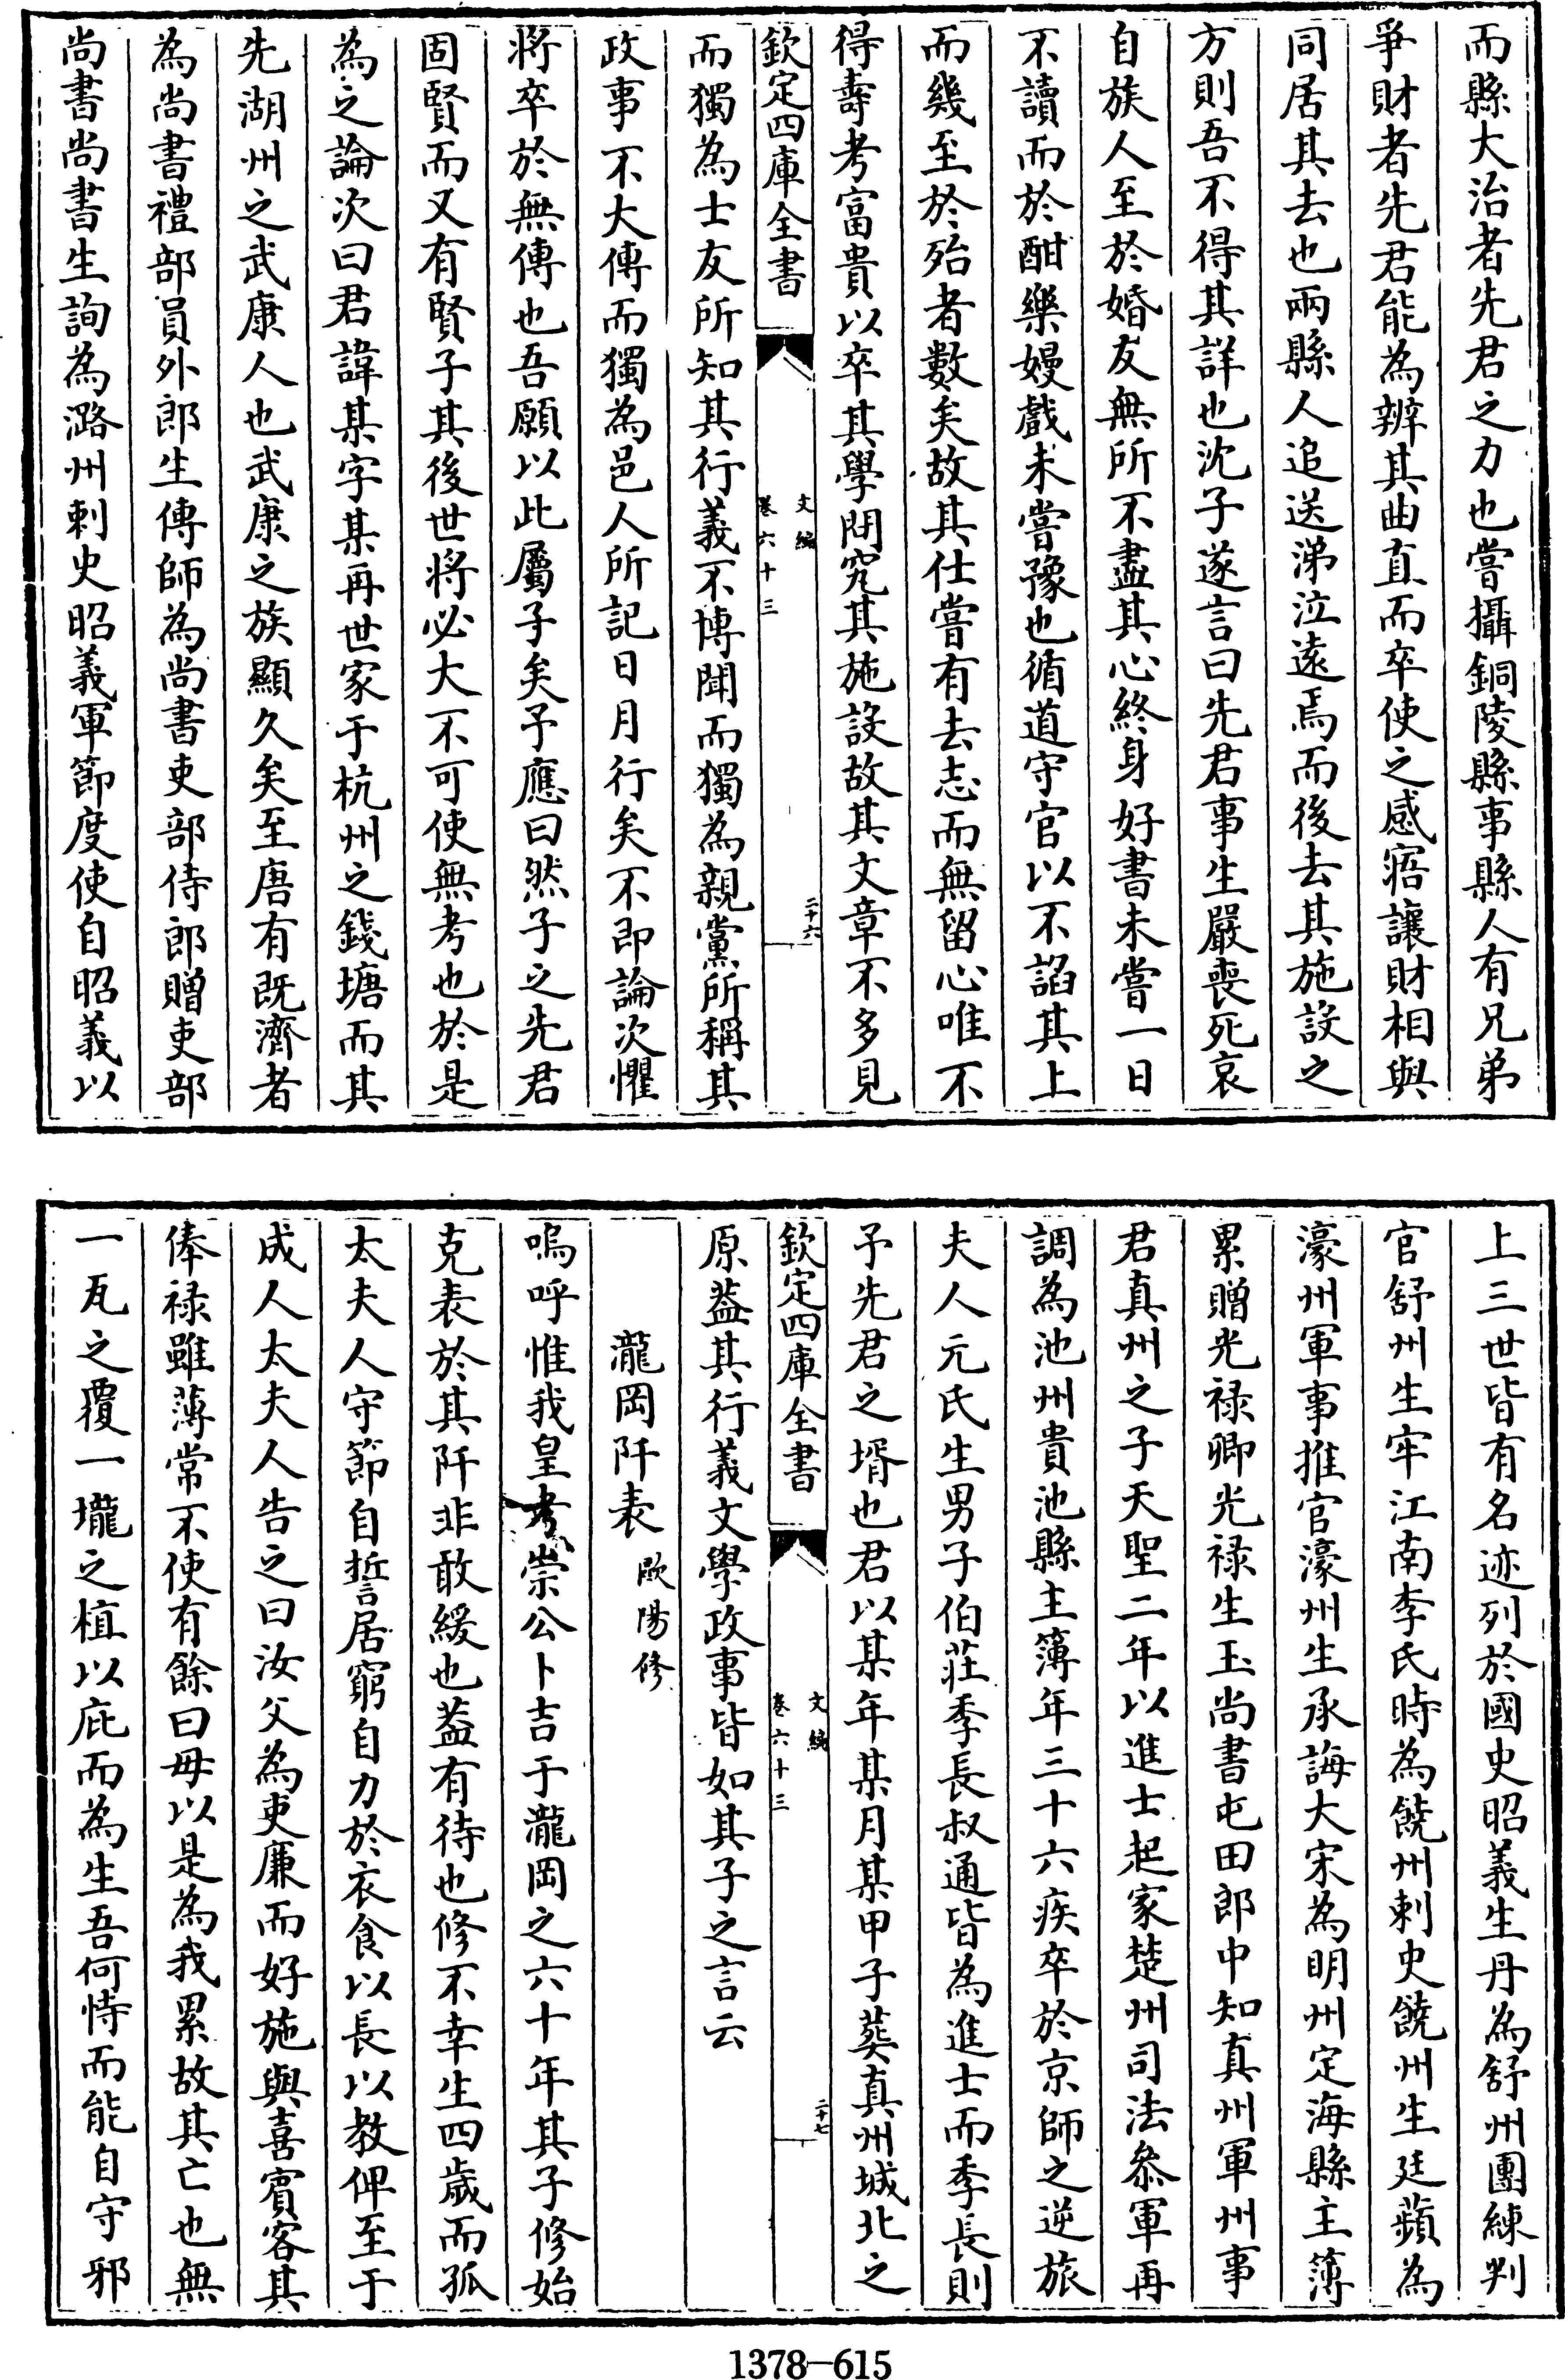 而縣大治者先君之力也嘗攝銅陵縣事縣人有兄弟
爭財者先君能為辨其曲直而卒使之感寤讓財相與
同居其去也兩縣人追送涕泣遠焉而後去其施設之
方則吾不得其詳也沈子遂言曰先君事生嚴喪死哀
自族人至於婚友無所不盡其心終身好書未嘗一日
不讀而於酣樂嫚戲未嘗豫也循道守官以不諂其上
而幾至於殆者數矣故其仕嘗有去志而無留心唯不
得壽考富貴以卒其學閎究其施設故其文章不多見
欽定四庫全書
文編
卷六十三
二十六
而獨為士友所知其行義不博聞而獨為親黨所稱其
政事不大傳而獨為邑人所記日月行矣不即論次懼
將卒於無傳也吾願以此屬子矣予應曰然子之先君
固賢而又有賢子其後世將必大不可使無考也於是
為之論次曰君諱某字某再世家于杭州之錢塘而其
先湖州之武康人也武康之族顯久矣至唐有既濟者
為尚書禮部員外郎生傳師為尚書吏部侍郎贈吏部
尚書尚書生詢為潞州刺史昭義軍節度使自昭義以
上三世皆有名迹列於國史昭義生丹為舒州團練判
官舒州生牢江南李氏時為饒州刺史饒州生廷蘋為
濠州軍事推官濠州生承誨大宋為明州定海縣主簿
累贈光祿卿光祿生玉尚書屯田郎中知真州軍州事
君真州之子天聖二年以進士起家楚州司法叅軍再
調為池州貴池縣主簿年三十六疾卒於京師之逆旅
夫人元氏生男子伯莊季長叔通皆為進士而季長則
予先君之壻也君以某年某月某甲子葬真州城北之
欽定四庫全書
文編
卷六十三
二十七
原葢其行義文學政事皆如其子之言云
瀧岡阡表 歐陽修
嗚呼惟我皇考崇公卜吉于瀧岡之六十年其子修始
克表於其阡非敢緩也葢有待也修不幸生四歲而孤
太夫人守節自誓居窮自力於衣食以長以教俾至于
成人太夫人告之曰汝父為吏廉而好施與喜賓客其
俸祿雖薄常不使有餘曰毋以是為我累故其亡也無
一瓦之覆一壠之植以庇而為生吾何恃而能自守邪
1378—615